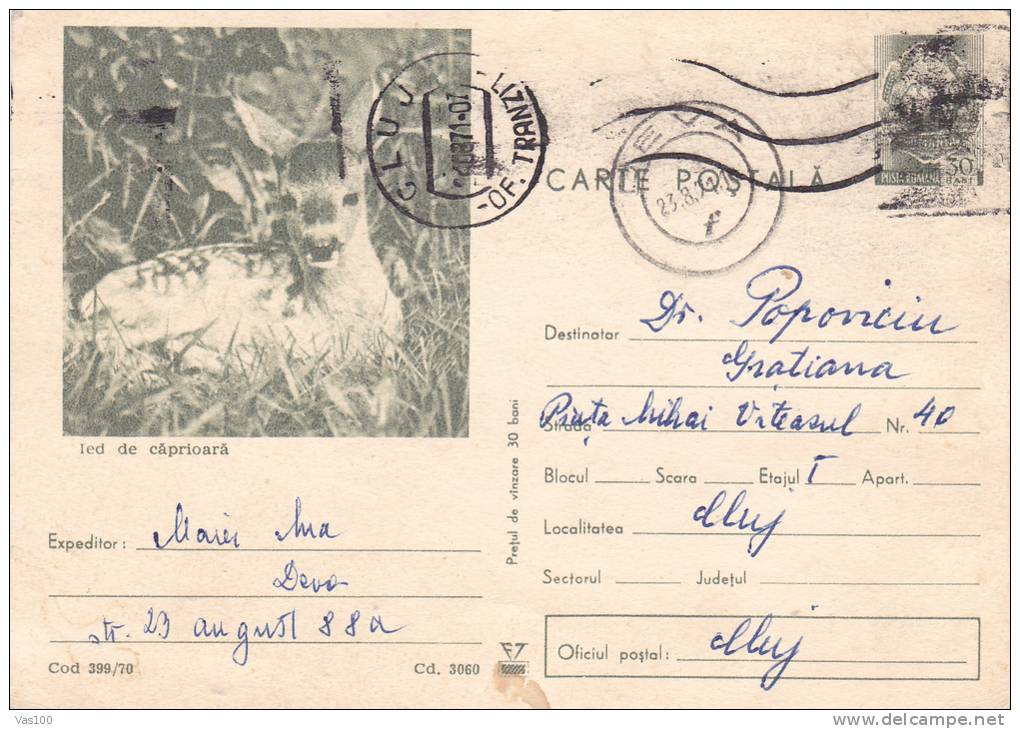 CLUJ
-LIZ
-OF. TRANZ
DEVA
23.8.71
f
CARTE POȘTALĂ
POSTA ROMANA
50 BANI
Destinatar Dr. Popoviciu
Gratiana
Strada Piața Mihai Viteasul Nr. 40
Ied de căprioară
Blocul Scara Etajul I Apart.
Localitatea Cluj
Expeditor: Ana
Deva
str. 23 august 88a
Sectorul Județul
Oficiul poștal: Cluj
Cod 399/70 Cd. 3060
Prețul de vînzare 30 bani
Vas100
www.delcampe.net